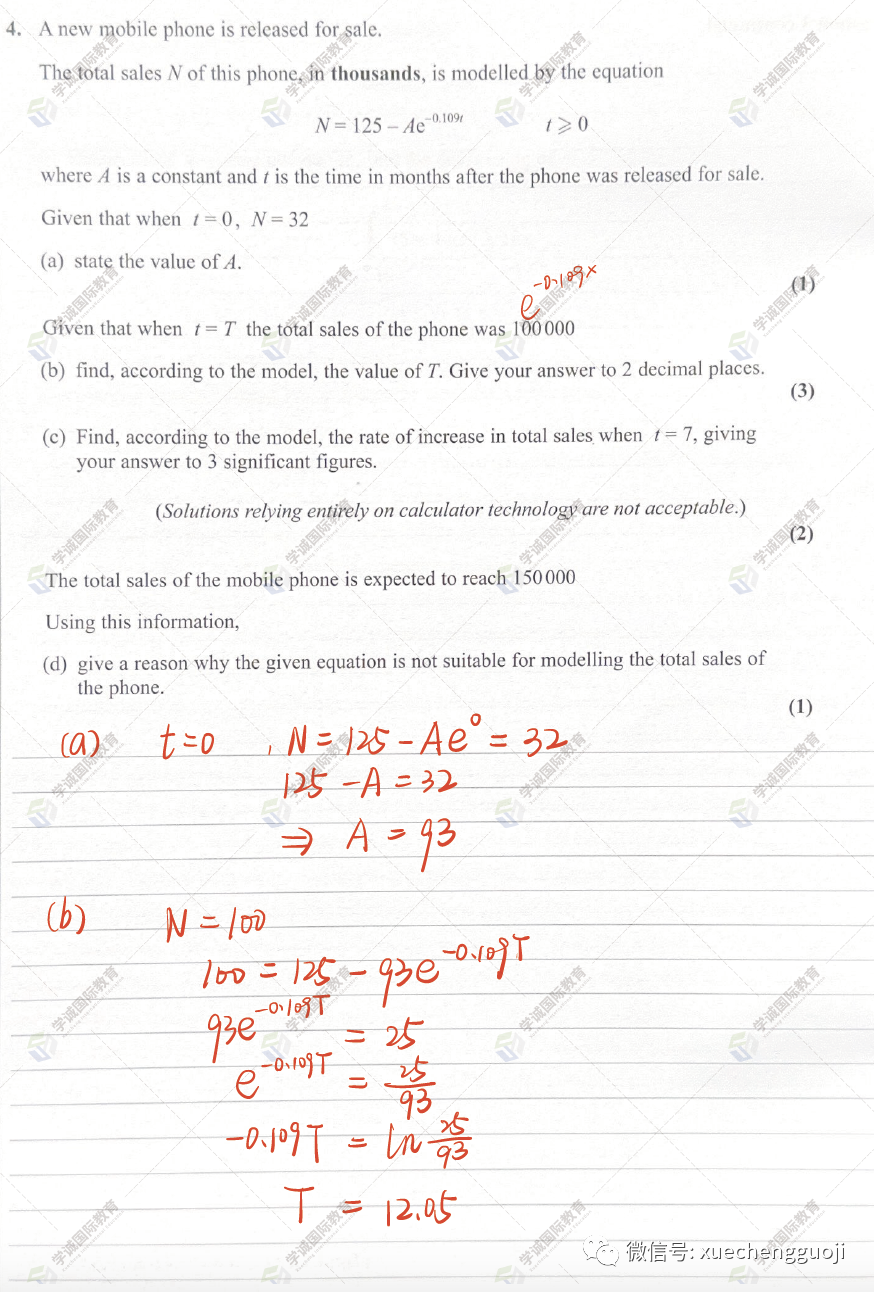 4. A new mobile phone is released for sale.
The total sales N of this phone, in thousands, is modelled by the equation
N = 125 – Ae^{–0.109t}   t ⩾ 0
where A is a constant and t is the time in months after the phone was released for sale.
Given that when t = 0, N = 32
(a) state the value of A.
(1)
e^{-0.109x}
Given that when t = T the total sales of the phone was 100 000
(b) find, according to the model, the value of T. Give your answer to 2 decimal places.
(3)
(c) Find, according to the model, the rate of increase in total sales when t = 7, giving
your answer to 3 significant figures.
(Solutions relying entirely on calculator technology are not acceptable.)
(2)
The total sales of the mobile phone is expected to reach 150 000
Using this information,
(d) give a reason why the given equation is not suitable for modelling the total sales of
the phone.
(1)
(a) t=0 , N = 125 - Ae^0 = 32
125 - A = 32
⇒ A = 93
(b) N = 100
100 = 125 - 93e^{-0.109T}
93e^{-0.109T} = 25
e^{-0.109T} = 25/93
-0.109T = ln 25/93
T = 12.05
学诚国际教育
微信号: xuechengguoji